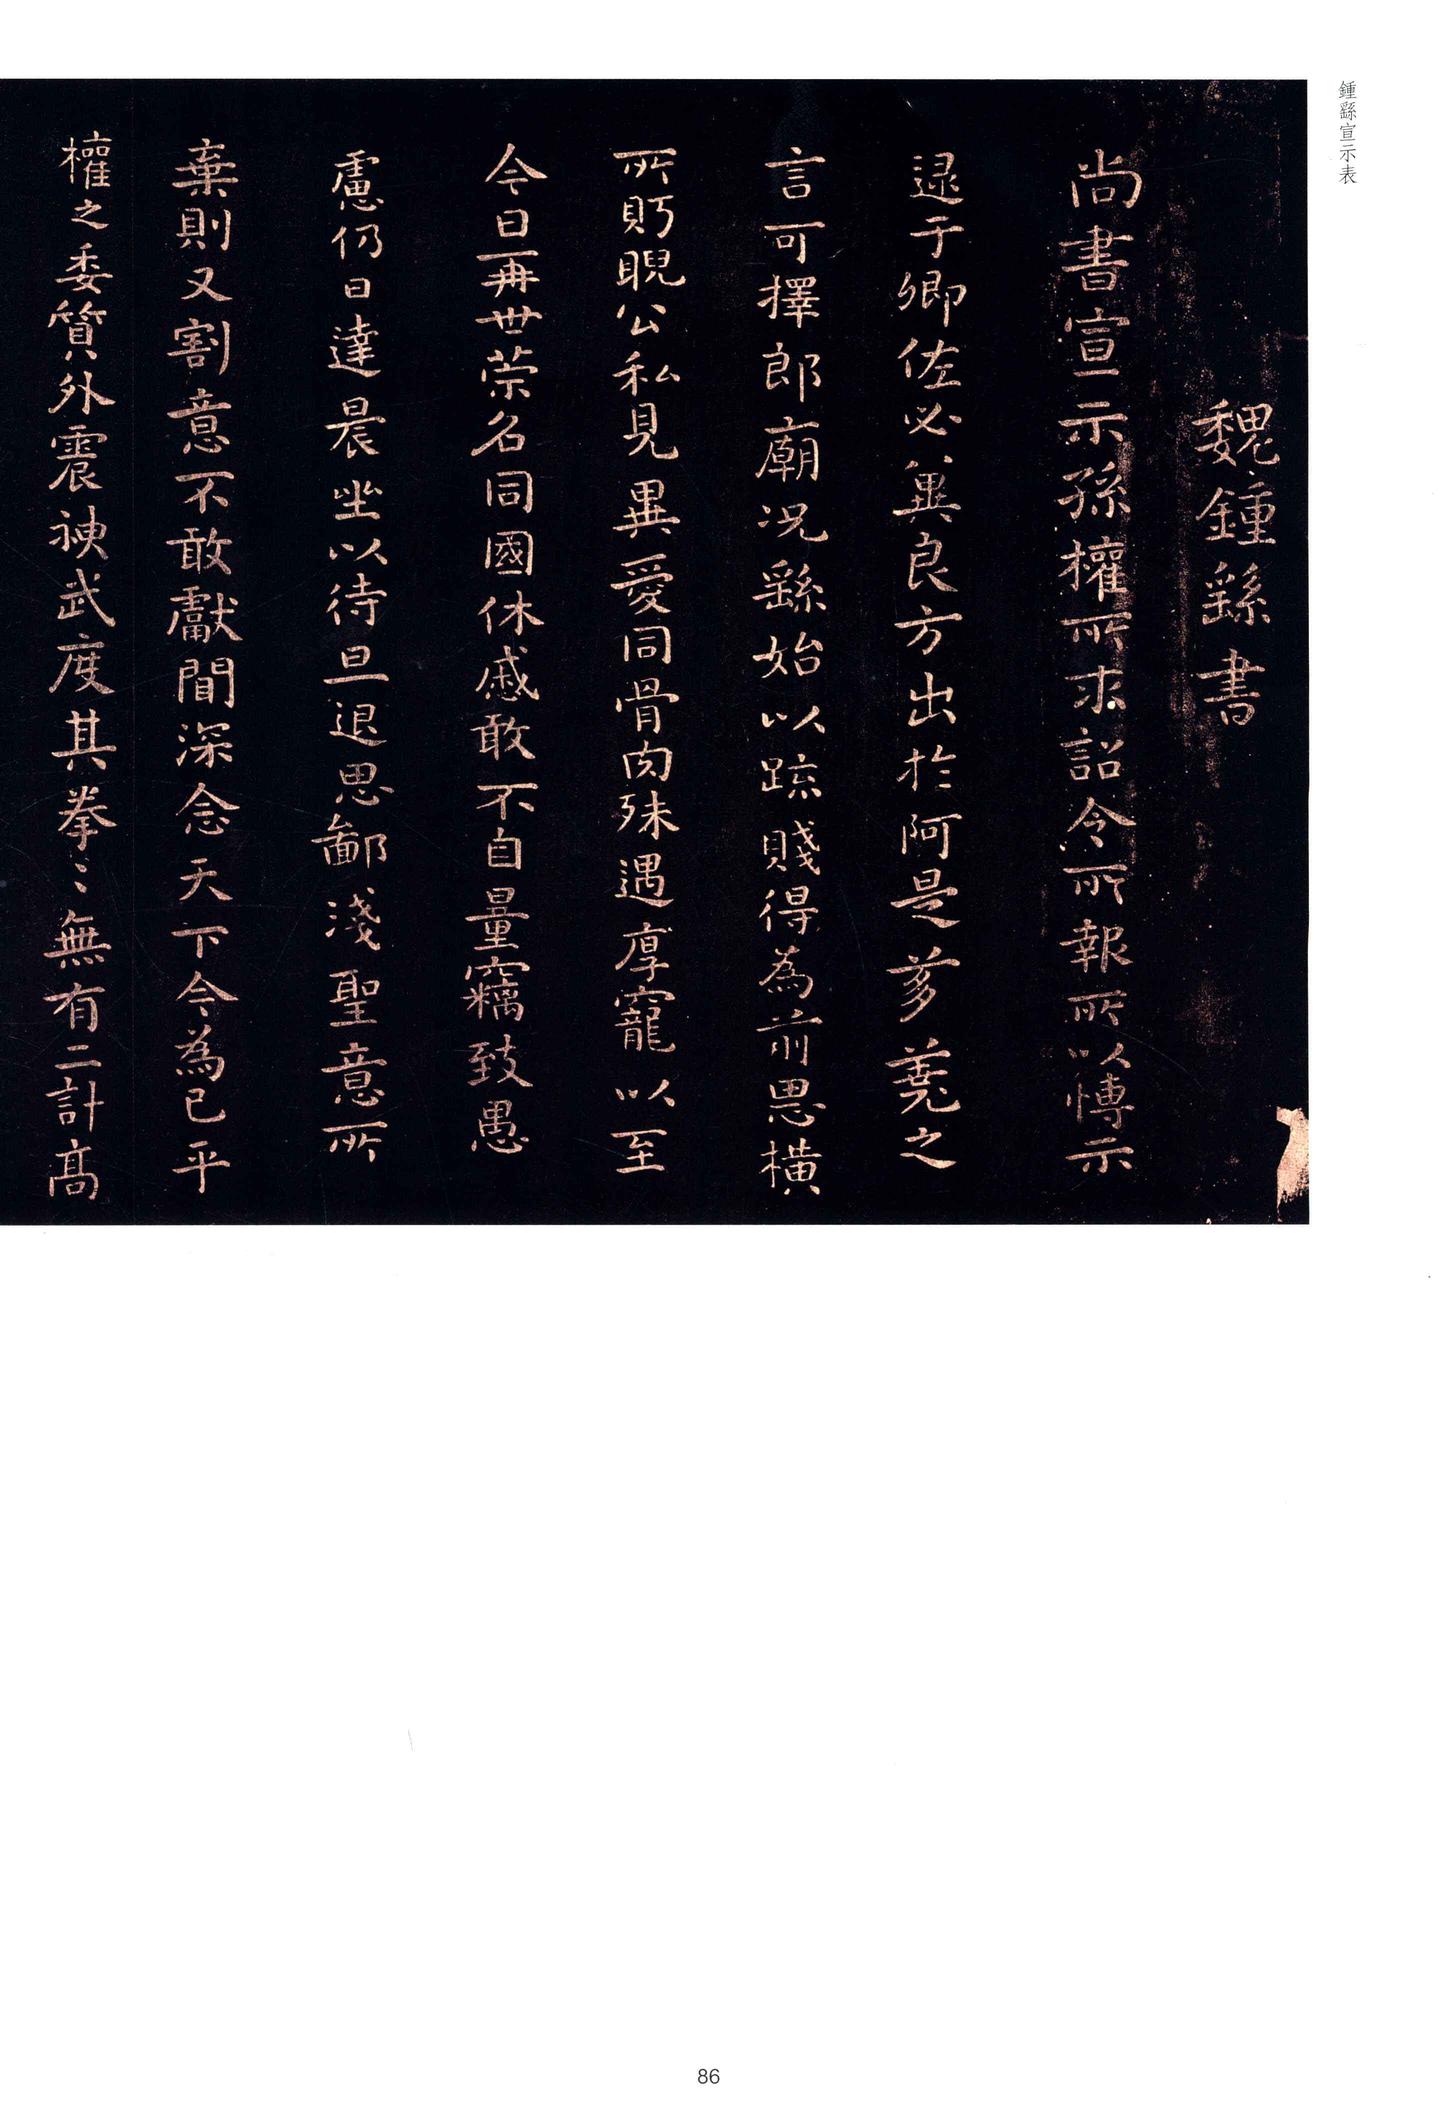 鍾繇宣示表
魏鍾繇書
尚書宣示孫權所求詔令所報所以博示
逮于卿佐必冀良方出於阿是芻蕘之
言可擇郎廟況繇始以疏賤得為前恩橫
所盱睨公私見異愛同骨肉殊遇厚寵以至
今日再世榮名同國休慼敢不自量竊致愚
慮仍日達晨坐以待旦退思鄙淺聖意所
棄則又割意不敢獻聞深念天下今為已平
權之委質外震神武度其拳〻無有二計高
86